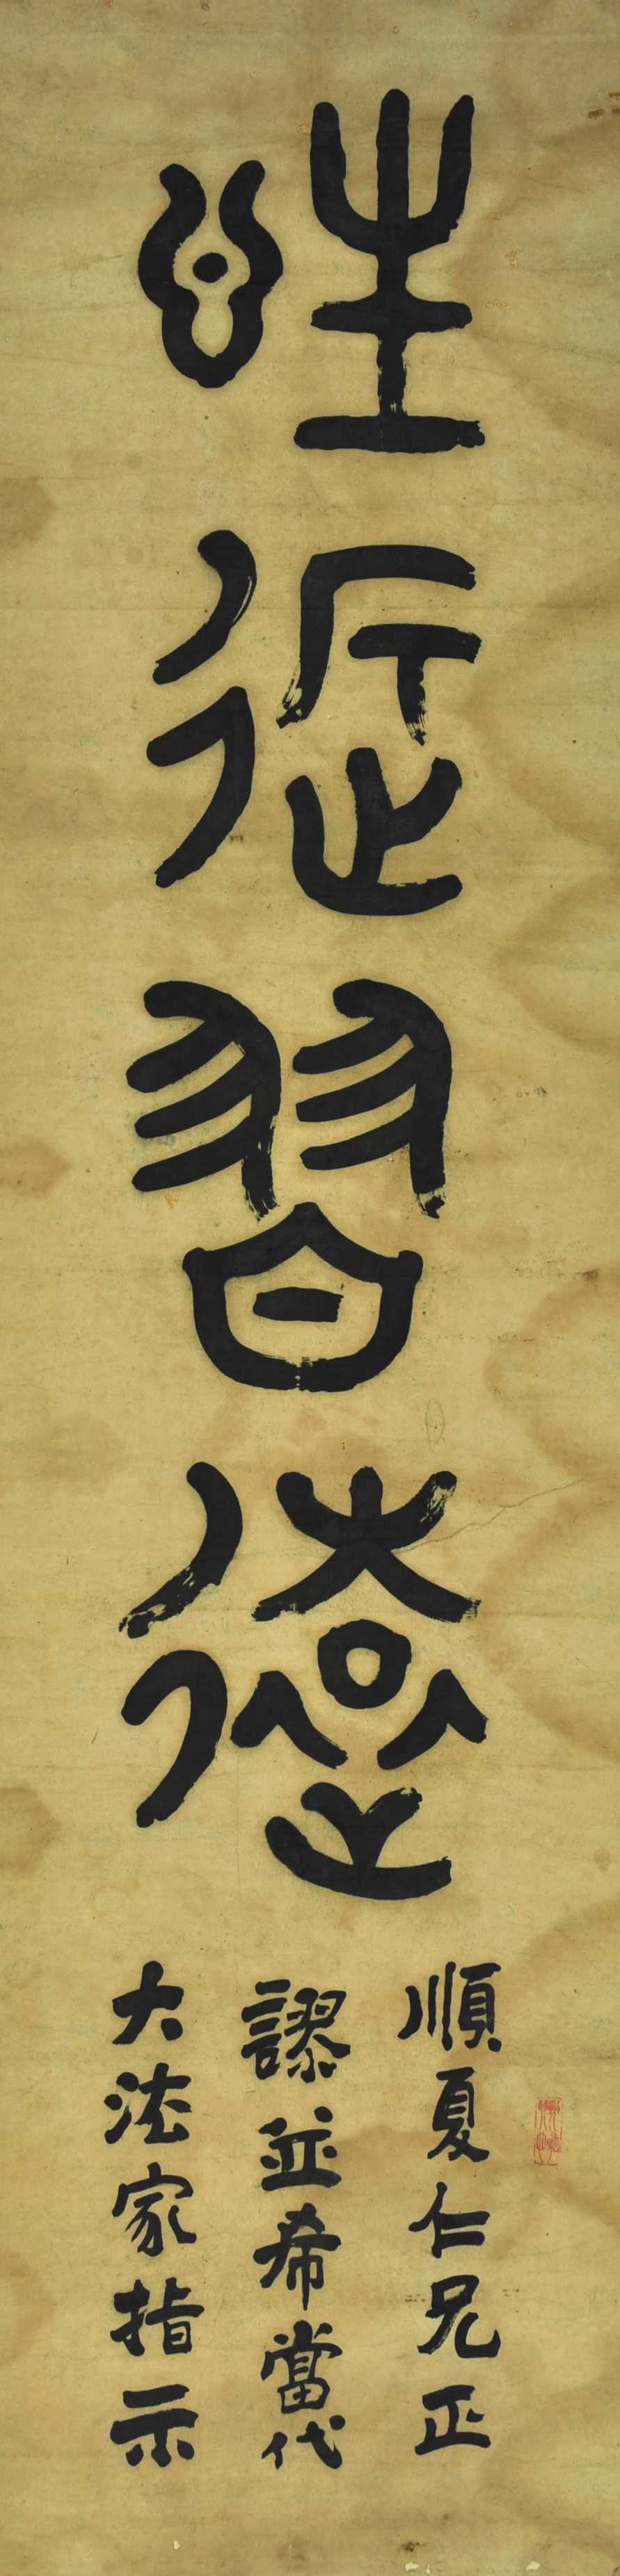 性近習遠
順夏仁兄正
謬並希當代
大法家指示